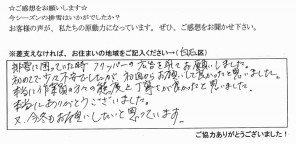 ☆ご感想をお願いします☆
今シーズンの排雪はいかがでしたか?
お客様の声が、私たちの原動力になっています。 ぜひ、ご感想をお聞かせ下さい。
※差支えなければ、お住まいの地域をご記入ください→( 白石 区)
排雪に困っていた時 フリッパーの広告を見てお願いしました。
初めてで少々不安でしたが、初回からお願いして良かったと思いました。
本当に作業員の方々の態度と丁寧さが良かったと思いました。
本当にありがとうございました。
又、今冬もお願いしたいと思っています。
ご協力ありがとうございました!